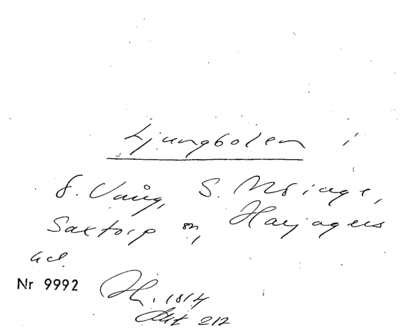 Ljungbolen i
S. Vång, S. Möinge,
Saxtorp sn, Harjagers
hd.
Nr 9992
1814
Akt 212